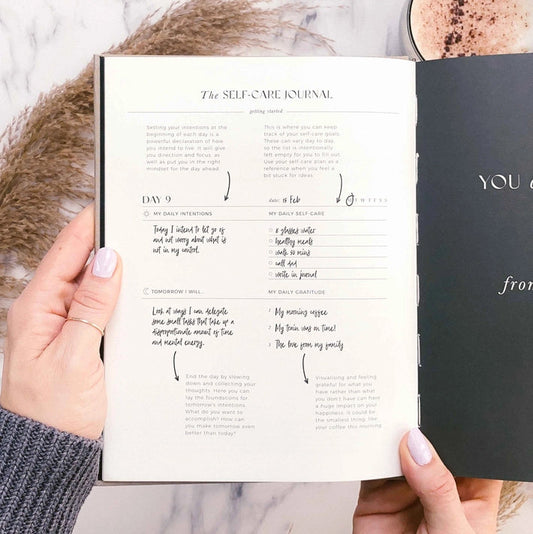 The SELF-CARE JOURNAL
getting started
Setting your intentions at the
beginning of each day is a
powerful declaration of how
you intend to live. It will give
you direction and focus, as
well as put you in the right
mindset for the day ahead.
This is where you can keep
track of your self-care goals.
These can vary day to day,
so the list is intentionally
left empty for you to fill out.
Use your self-care plan as a
reference when you feel a
bit stuck for ideas.
DAY 9
date: 18 Feb
M T W T F S S
MY DAILY INTENTIONS
Today I intend to let go of
and not worry about what is
not in my control.
MY DAILY SELF-CARE
8 glasses water
healthy meals
walk 30 mins
call dad
write in journal
TOMORROW I WILL...
Look at ways I can delegate
some small tasks that take up a
disproportionate amount of time
and mental energy.
MY DAILY GRATITUDE
1 My morning coffee
2 My train was on time!
3 The love from my family
End the day by slowing
down and collecting your
thoughts. Here you can
lay the foundations for
tomorrow's intentions.
What do you want to
accomplish? How can
you make tomorrow even
better than today?
Visualising and feeling
grateful for what you
have rather than what
you don't have can have
a huge impact on your
happiness. It could be
the smallest thing, like
your coffee this morning.
YOU
from